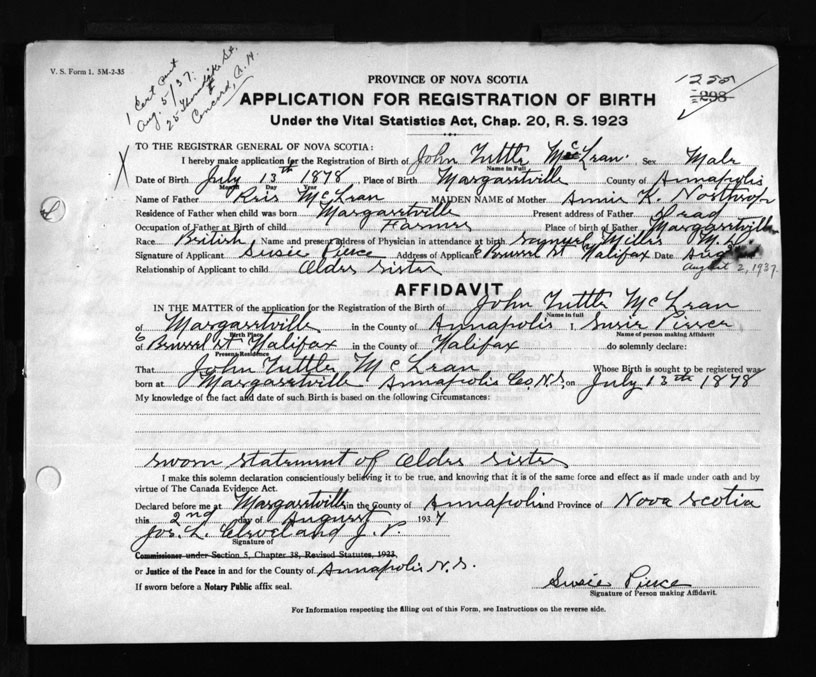 V. S. Form 1. 5M-2-35
1 Cert sent
Aug. 5/37.
25
Concord, N. H.
PROVINCE OF NOVA SCOTIA
APPLICATION FOR REGISTRATION OF BIRTH
Under the Vital Statistics Act, Chap. 20, R. S. 1923
298
TO THE REGISTRAR GENERAL OF NOVA SCOTIA:
X
I hereby make application for the Registration of Birth of John Tuttle McLean. Sex Male
Name in Full
Date of Birth July 13th 1878 Place of Birth Margaretville County of Annapolis
Month Day Year
Name of Father McLean MAIDEN NAME of Mother Annie K. Northrop
Residence of Father when child was born Margaretville Present address of Father Dead
Occupation of Father at Birth of child Farmer Place of birth of Father Margaretville
Race British Name and present address of Physician in attendance at birth Samuel Miller M. D.
Signature of Applicant Susie Pierce Address of Applicant 6 Brussel St Halifax Date Aug
August 2, 1937.
Relationship of Applicant to child Older Sister
AFFIDAVIT
IN THE MATTER of the application for the Registration of the Birth of John Tuttle McLean
Name in full
of Margaretville in the County of Annapolis I, Susie Pierce
Birth Place Name of person making Affidavit
of 6 Brussel St Halifax in the County of Halifax do solemnly declare:
Present Residence
That John Tuttle McLean Whose Birth is sought to be registered was
born at Margaretville Annapolis Co. N.S. on July 13th 1878
My knowledge of the fact and date of such Birth is based on the following Circumstances:
Sworn statement of Older Sister
I make this solemn declaration conscientiously believing it to be true, and knowing that it is of the same force and effect as if made under oath and by
virtue of The Canada Evidence Act.
Declared before me at Margaretville in the County of Annapolis and Province of Nova Scotia
this 2nd day of August 1937
Jos. L. Cleveland J. P.
Signature of
Commissioner under Section 5, Chapter 38, Revised Statutes, 1923,
or Justice of the Peace in and for the County of Annapolis N.S.
If sworn before a Notary Public affix seal.
Susie Pierce
Signature of Person making Affidavit.
For Information respecting the filling out of this Form, see Instructions on the reverse side.